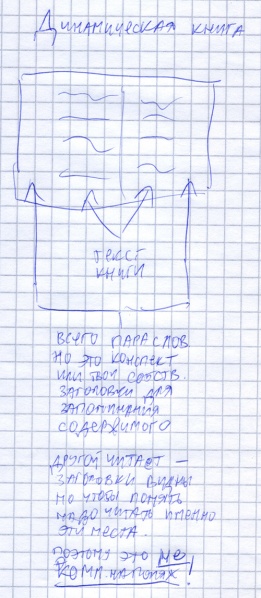 Динамическая книга
текст
книги
всего пара слов
но это конспект
или твои собств.
заголовки для
запоминания
содержимого
другой читает —
заголовки видны
но чтобы понять
надо читать именно
эти места.
поэтому это не
комм. на полях!